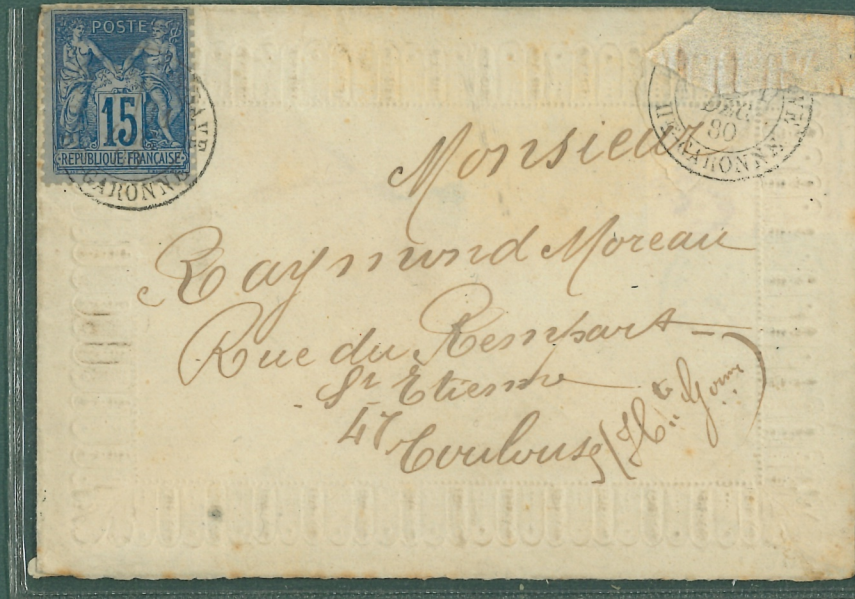 POSTE
15
RÉPUBLIQUE FRANÇAISE
GARONNE
DEC
80
Hte GARONNE
Monsieur
Raymond Moreau
Rue du Rempart
St Etienne
47
Toulouse (Hte Garonne)